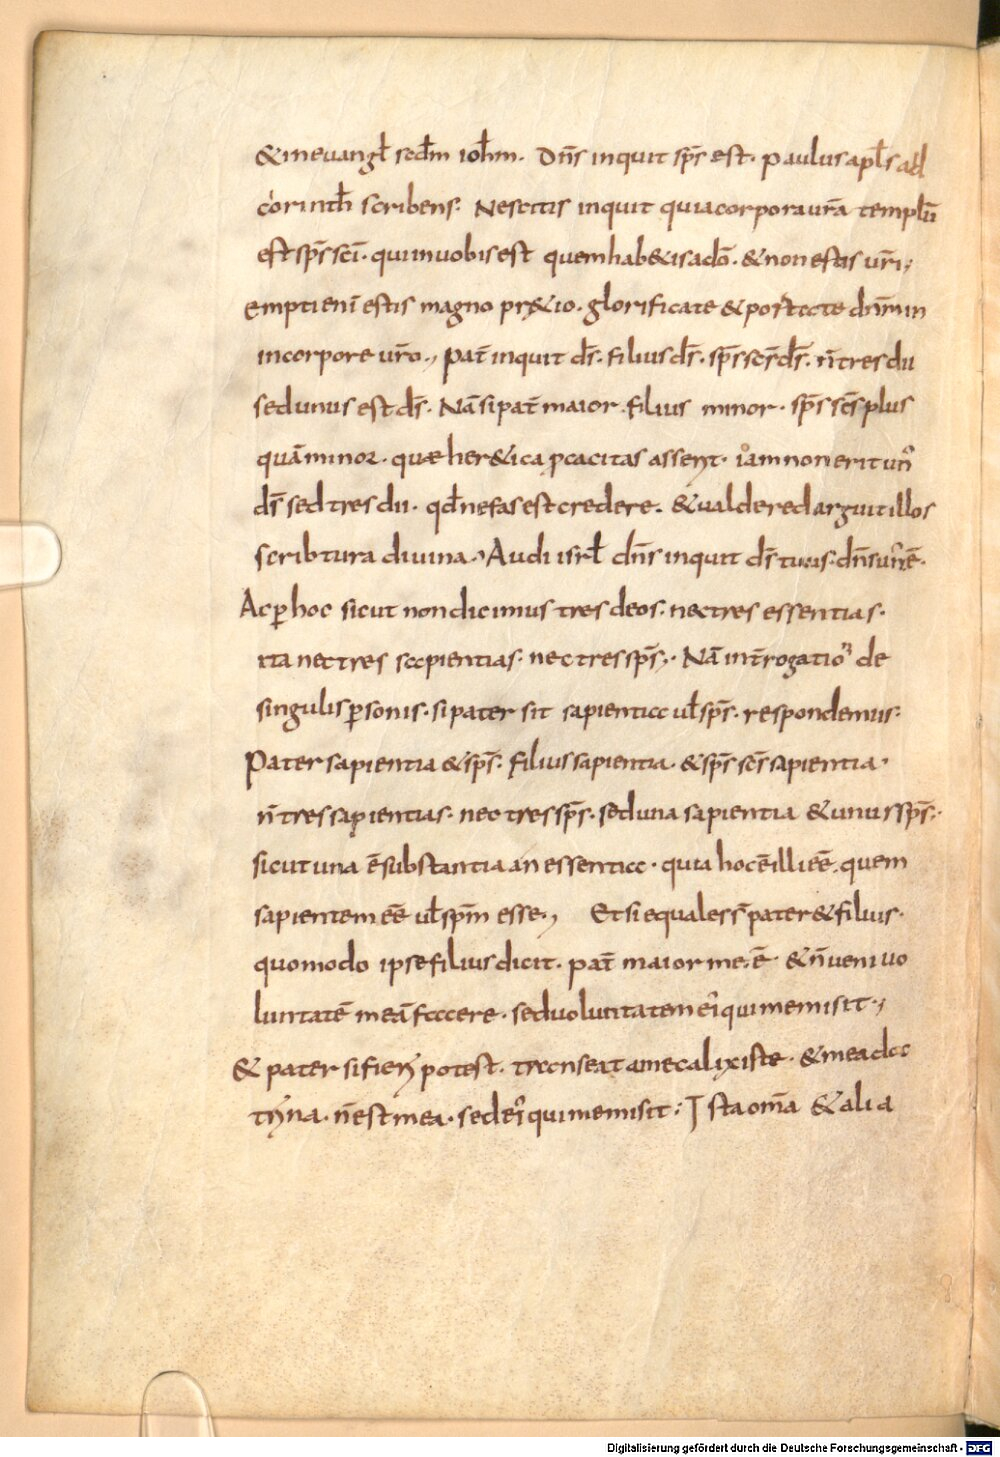 & in euangł scđm ioħm. Dn̄s inquit sp̄s est. paulus apl̄s ad
corinth̄ scribens. Nescitis inquit quia corpora ur̄a templū
est sp̄s sc̄i. qui in uobis est quem hab&is a dō. & non estis ur̄i;
empti enī estis magno pr&io. glorificate & portate dn̄m in
in corpore ur̄o., pat̄ inquit d̄s. filius d̄s. sp̄s sc̄s d̄s. n̄ tres dii
sed unus est d̄s. Nā si pat̄ maior filius minor. sp̄s sc̄s plus
quā minor. quæ her&ica pcacitas asser̄t. iam non erit un̄
d̄s sed tres dii. qđ nefas est credere. & ualde redarguit illos
scribtura diuina., Audi isrł dn̄s inquit d̄s tuus. dn̄s un' ē.
Ac ꝑ hoc sicut non dicimus tres deos. nec tres essentias.
ita nec tres sapientias. nec tres sp̄s,. Nā int̄rogatio de
singulis ꝑsonis. si pater sit sapientia uł sp̄s. respondemus.
Pater sapientia & sp̄s. filius sapientia. & sp̄s sc̄s sapientia.
n̄ tres sapientias. nec tres sp̄s. sed una sapientia & unus sp̄s.
sicut una ē substantia an essentia. quia hoc ē illi eē. quem
sapientem eē uł sp̄m esse., Et si equales s̄ pater & filius.
quomodo ipse filius dicit. pat̄ maior me. ē & n̄ ueni uo
luntatē meā facere. sed uoluntatem ei' qui me misit.,
& pater si fieri potest. transeat a me calix iste. & mea doc
trina. n̄ est mea. sed ei' qui me misit; Ista om̄a & alia
Digitalisierung gefördert durch die Deutsche Forschungsgemeinschaft - DFG